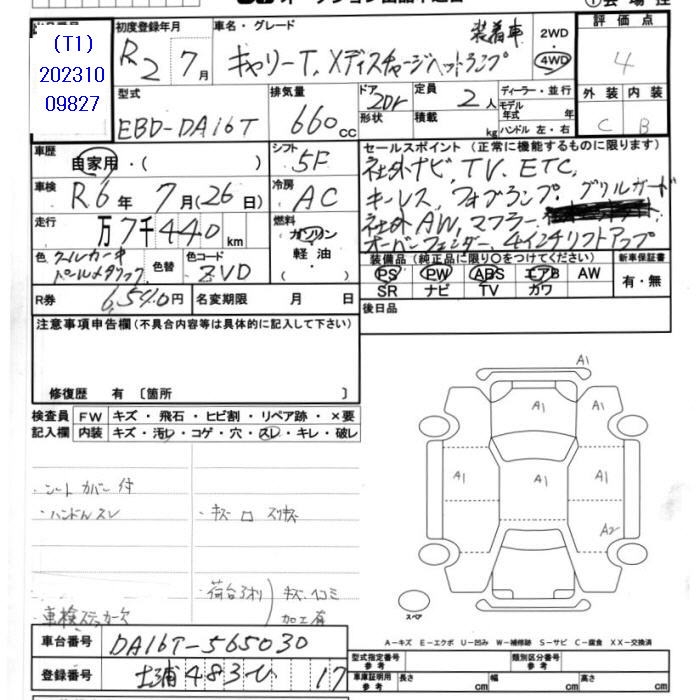 (T1)
202310
09827
初度登録年月
R2 7月
車名・グレード
キャリーT, Xディスチャージヘットランプ
装着車
2WD
・
4WD
評価点
4
外装 内装
C B
型式
EBD-DA16T
排気量
660cc
ドア
2Dr
形状
定員 2人
積載 kg
ディーラー・並行
モデル
年式 年
ハンドル 左・右
車歴
自家用・( )
シフト
5F
車検
R6年7月(26日)
冷房
AC
走行
万7千440km
燃料
ガソリン
軽油
( )
色
クールカーキ
パールメタリック
色替
色コード
ZVD
R券 6,540円
名変期限 月 日
セールスポイント(正常に機能するものに限ります)
社外ナビ, TV, ETC,
キーレス, フォグランプ, グリルガード
社外AW, マフラー,
オーバーフェンダー, 4インチリフトアップ
装備品(純正品に限り〇をつけてください)
PS PW ABS エアB AW
SR ナビ TV カワ
新車保証書
有・無
後日品
注意事項申告欄(不具合内容等は具体的に記入して下さい)
修復歴 有 〔箇所 〕
検査員 FW キズ・飛石・ヒビ割・リペア跡・×要
記入欄 内装 キズ・汚レ・コゲ・穴・スレ・キレ・破レ
・シートカバー付
・ハンドルスレ
・キズ ロ スリキズ
・荷台アオリ キズ・ヘコミ
加工有
・車検ステッカー欠
A1
A1
A1
A1
A1
A1
A2
スペア
A-キズ E-エクボ U-凹み W-補修跡 S-サビ C-腐食 XX-交換済
車台番号 DA16T-565030
登録番号 土浦 483 ひ 17
型式指定番号
参考
類別区分番号
参考
車庫証明用
参考
長さ cm 幅 cm 高さ cm